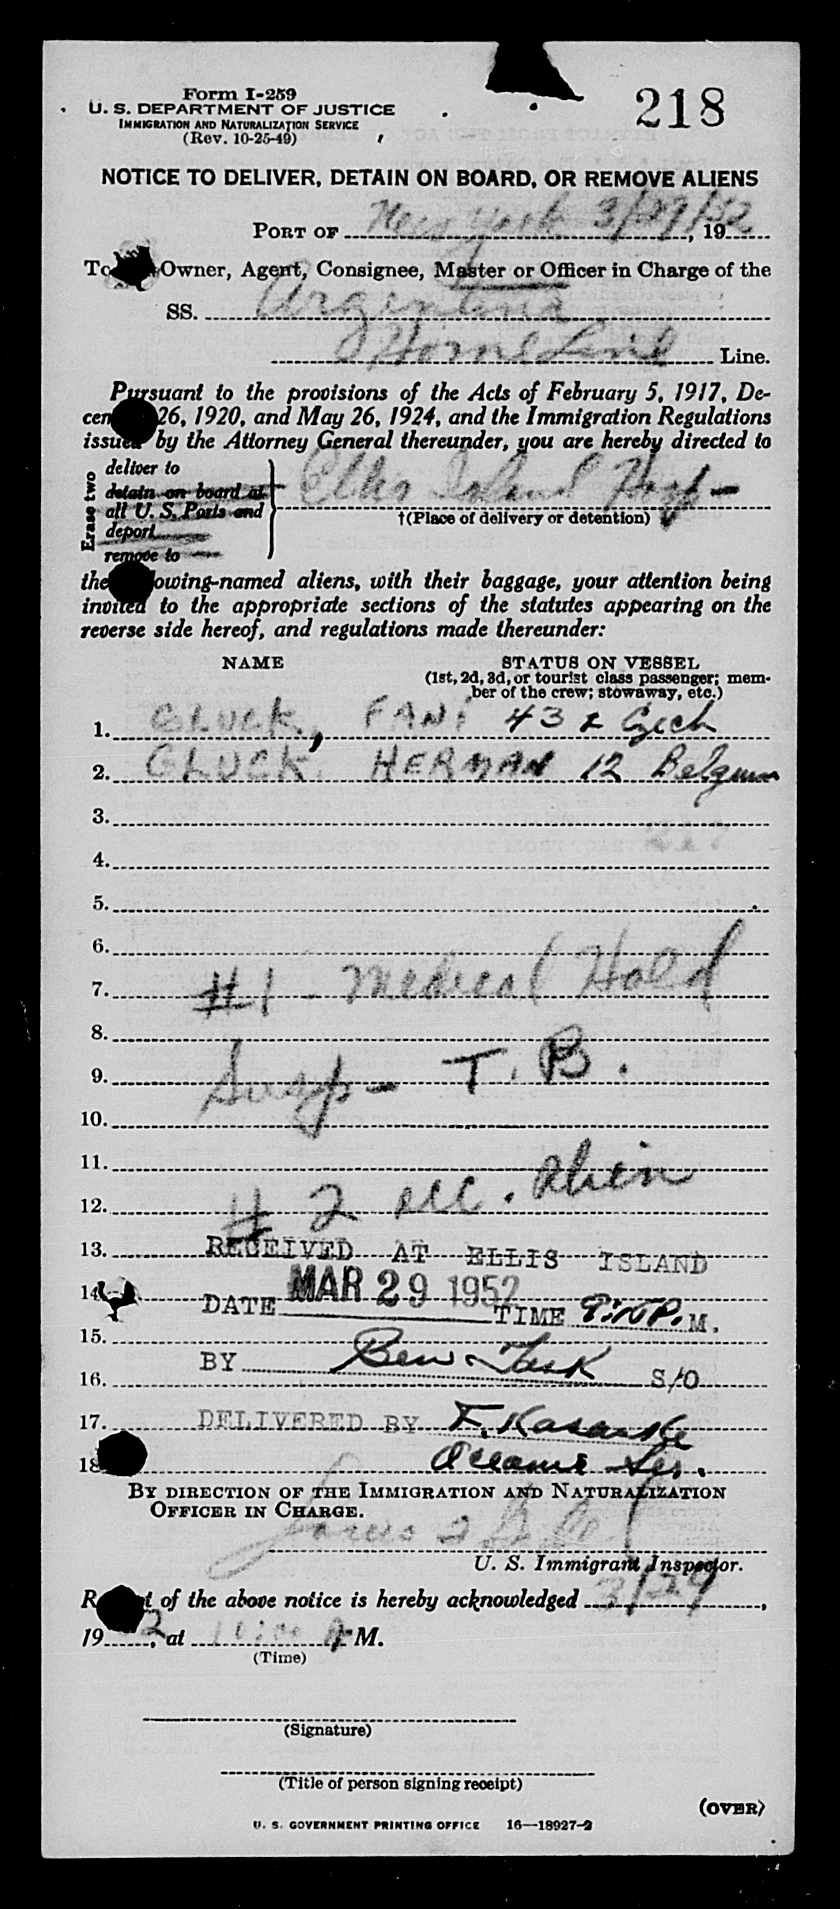 Form I-259
218
U. S. DEPARTMENT OF JUSTICE
IMMIGRATION AND NATURALIZATION SERVICE
(Rev. 10-25-49)
NOTICE TO DELIVER, DETAIN ON BOARD, OR REMOVE ALIENS
PORT OF New York 3/29/52, 19
To Owner, Agent, Consignee, Master or Officer in Charge of the
SS. Argentina
Home Line Line.
Pursuant to the provisions of the Acts of February 5, 1917, De-
cem 26, 1920, and May 26, 1924, and the Immigration Regulations
issued by the Attorney General thereunder, you are hereby directed to
Erase two
deliver to
detain on board at
all U. S. Ports and
deport
remove to
Ellis Island Hosp-
†(Place of delivery or detention)
the owing-named aliens, with their baggage, your attention being
invited to the appropriate sections of the statutes appearing on the
reverse side hereof, and regulations made thereunder:
NAME STATUS ON VESSEL
(1st, 2d, 3d, or tourist class passenger; mem-
ber of the crew; stowaway, etc.)
1. GLUCK, FANI 43 Czech
2. GLUCK, HERMAN 12 Belgium
3.
4.
5.
6.
7. #1 - Medical Hold
8.
9. Susp - T. B.
10.
11.
12. # 2 acc. Alien
13. RECEIVED AT ELLIS ISLAND
14. DATE MAR 29 1952 TIME P. M.
15.
16. BY Ben S/O
17. DELIVERED BY F.
18
BY DIRECTION OF THE IMMIGRATION AND NATURALIZATION
OFFICER IN CHARGE.
U. S. Immigrant Inspector.
R t of the above notice is hereby acknowledged 3/29,
19 2, at M.
(Time)
(Signature)
(Title of person signing receipt)
(OVER)
U. S. GOVERNMENT PRINTING OFFICE 16—18927-2